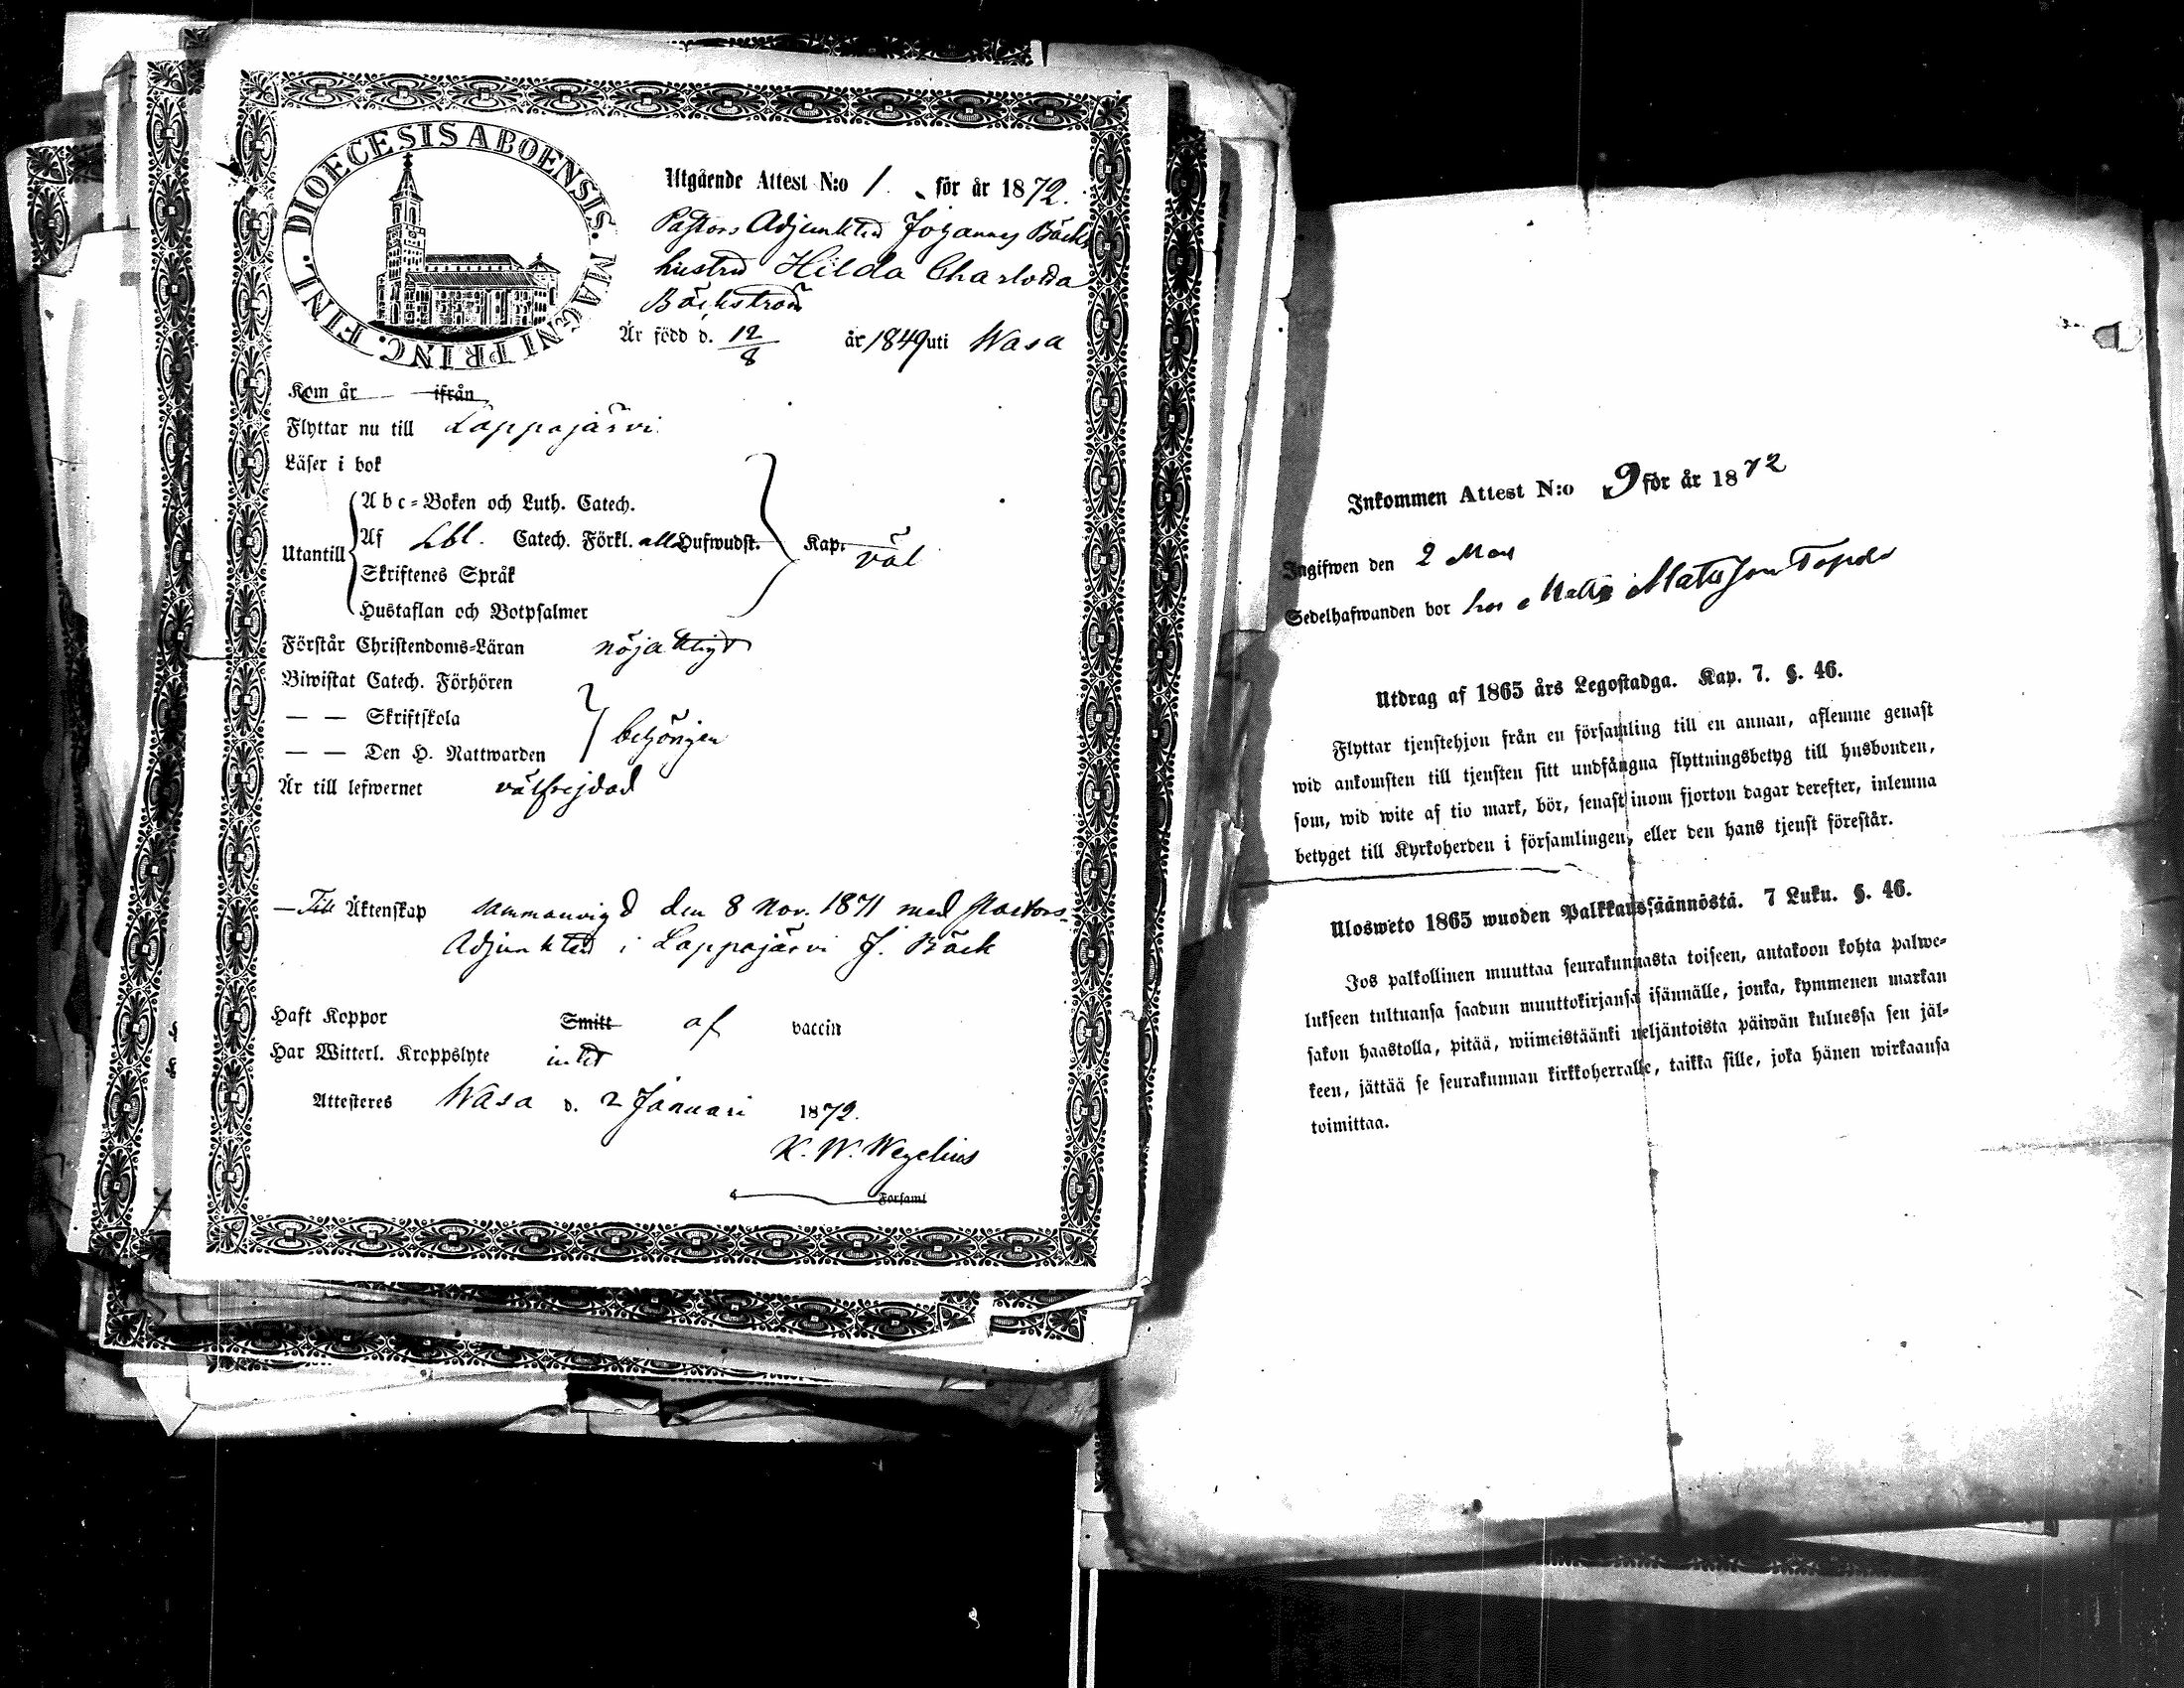 DIOECESIS ABOENSIS. MAGNI PRINC. FINL.
Utgående Attest N:o 1. för år 1872.
Pastors Adjunkten Johannes Bäcks
hustru Hilda Charlotta
Bäckström
Är född d. 12/8 år 1849 uti Wasa
Kom år ifrån
Flyttar nu till Lappajärvi
Läser i bok
Utantill
Abc-Boken och Luth. Catech.
Af Lbl. Catech. Förkl. alla Hufwudst. Kap. väl
Skriftenes Språk
Hustaflan och Botpsalmer
Förstår Christendoms-Läran nöjaktigt
Biwistat Catech. Förhören
— — Skriftskola
— — Den H. Nattwarden
behörigen
Är till lefwernet välfrejdad
— Till Äktenskap sammanvigd den 8 Nov. 1871 med Pastors-
Adjunkten i Lappajärvi J. Bäck
Haft Koppor Smitt af vaccin
Har Witterl. Kroppslyte intet
Attesteres Wasa d. 2 Januari 1872.
K. W. Wegelius
Forsaml
Inkommen Attest N:o 9 för år 1872
Ingifwen den 2 Mars
Sedelhafwanden bor hos Matts Matsson
Utdrag af 1865 års Legostadga. Kap. 7. §. 46.
Flyttar tjenstehjon från en församling till en annan, aflemne genast
wid ankomsten till tjensten sitt undfångna flyttningsbetyg till husbonden,
som, wid wite af tio mark, bör, senast inom fjorton dagar derefter, inlemna
betyget till Kyrkoherden i församlingen, eller den hans tjenst förestår.
Ulosweto 1865 wuoden Palkkaussäännöstä. 7 Luku. §. 46.
Jos palkollinen muuttaa seurakunnasta toiseen, antakoon kohta palwe-
lukseen tultuansa saadun muuttokirjansa isännälle, jonka, kymmenen markan
sakon haastolla, pitää, wiimeistäänki neljäntoista päiwän kuluessa sen jäl-
keen, jättää se seurakunnan kirkkoherralle, taikka sille, joka hänen wirkaansa
toimittaa.